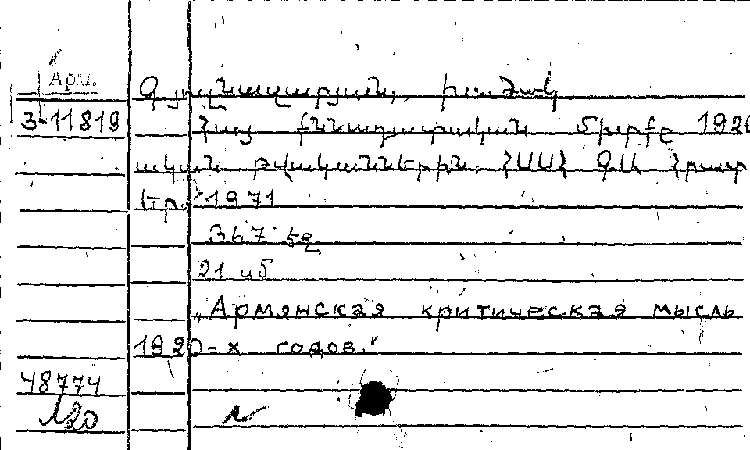 Арм.
3-11819
Գյուլնազարյան, Խաժակ
Հայ քննադատական միտքը 1920
ական թվականներին. ՀՍՍՀ ԳԱ հրատ
Եր., 1971
367 էջ
21 սմ
„Армянская критическая мысль
1920-х годов."
48774
120